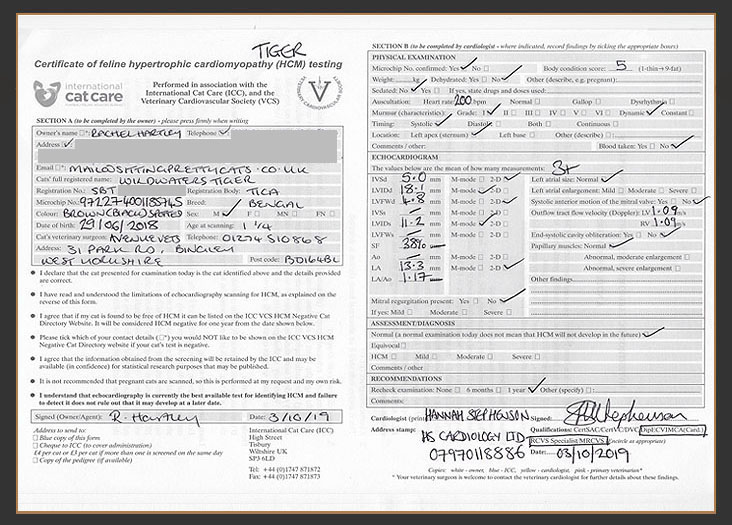 TIGER
Certificate of feline hypertrophic cardiomyopathy (HCM) testing
international
cat care
Performed in association with the
International Cat Care (ICC), and the
Veterinary Cardiovascular Society (VCS)
VETERINARY CARDIOVASCULAR SOCIETY
SECTION A (to be completed by the owner) - please press firmly when writing
Owner's name RACHEL HARTLEY Telephone
Address
Email MAIL@SITTINGPRETTYCATS.CO.UK
Cats' full registered name: WILDWATERS TIGER
Registration No.: SBT Registration Body: TICA
Microchip No.: 972274001185745 Breed: BENGAL
Colour: BROWN (BLACK) SPOTTED Sex: M ✓ F MN FN
Date of birth: 29/06/2018 Age at scanning: 1 1/4
Cat's veterinary surgeon: AVENUE VETS Telephone: 01274 510868
Address: 31 PARK RD, BINGLEY
WEST YORKSHIRE Post code: BD164BL
• I declare that the cat presented for examination today is the cat identified above and the details provided
are correct.
• I have read and understood the limitations of echocardiography scanning for HCM, as explained on the
reverse of this form.
• I agree that if my cat is found to be free of HCM it can be listed on the ICC VCS HCM Negative Cat
Directory Website. It will be considered HCM negative for one year from the date shown below.
• Please tick which of your contact details (□*) you would NOT like to be shown on the ICC VCS HCM
Negative Cat Directory website if your cat's test is negative.
• I agree that the information obtained from the screening will be retained by the ICC and may be
available (in confidence) for statistical research purposes that may be published.
• It is not recommended that pregnant cats are scanned, so this is performed at my request and my own risk.
• I understand that echocardiography is currently the best available test for identifying HCM and failure
to detect it does not rule out that it may develop at a later date.
Signed (Owner/Agent): R. Hartley Date: 3/10/19
Address to send to:
Blue copy of this form
Cheque to ICC (to cover administration)
£4 per cat or £3 per cat if more than one is screened on the same day
Copy of the pedigree (if available)
International Cat Care (ICC)
High Street
Tisbury
Wiltshire UK
SP3 6LD
Tel: +44 (0)1747 871872
Fax: +44 (0)1747 871873
SECTION B (to be completed by cardiologist - where indicated, record findings by ticking the appropriate boxes)
PHYSICAL EXAMINATION
Microchip No. confirmed: Yes ✓ No Body condition score: 5 (1-thin→9-fat)
Weight: kg Dehydrated: Yes No ✓ Other (describe, e.g. pregnant):
Sedated: No ✓ Yes If yes, state drugs and doses used:
Auscultation: Heart rate: 200 bpm Normal Gallop Dysrhythmia
Murmur (characteristics): Grade: I ✓ II III IV V VI Dynamic ✓ Constant
Timing: Systolic ✓ Diastolic Both Continuous
Location: Left apex (sternum) ✓ Left base Other (describe)
Comments / other: Blood taken: Yes No ✓
ECHOCARDIOGRAM
The values below are the mean of how many measurements: 3+
IVSd 5.0 mm M-mode 2-D ✓ Left atrial size: Normal ✓
LVIDd 18.1 mm M-mode ✓ 2-D Left atrial enlargement: Mild Moderate Severe
LVFWd 4.8 mm M-mode 2-D ✓ Systolic anterior motion of the mitral valve: Yes No ✓
IVSs mm M-mode 2-D Outflow tract flow velocity (Doppler): LV 1.09 m/s
LVIDs 11.2 mm M-mode ✓ 2-D RV 1.09 m/s
LVFWs mm M-mode 2-D End-systolic cavity obliteration: Yes No ✓
SF 38% Papillary muscles: Normal ✓
Ao mm M-mode 2-D Abnormal, moderate enlargement
LA 13.3 mm M-mode 2-D ✓ Abnormal, severe enlargement
LA/Ao 1.17 Other findings
Mitral regurgitation present: Yes No ✓
If yes: Mild Moderate Severe
ASSESSMENT/DIAGNOSIS
Normal (a normal examination today does not mean that HCM will not develop in the future) ✓
Equivocal
HCM Mild Moderate Severe
Comments / other
RECOMMENDATIONS
Recheck examination: None 6 months 1 year ✓ Other (specify):
Cardiologist (print): HANNAH STEPHENSON Signed: H Stephenson
Address stamp: HS CARDIOLOGY LTD Qualifications: CertSAC/CertVC/DVC/DipECVIMCA(Card.)
RCVS Specialist MRCVS (encircle as appropriate)
07970118886 Date: 03/10/2019
Copies: white - owner, blue - ICC, yellow - cardiologist, pink - primary veterinarian*
* Your veterinary surgeon is welcome to contact the veterinary cardiologist for further details about these findings.